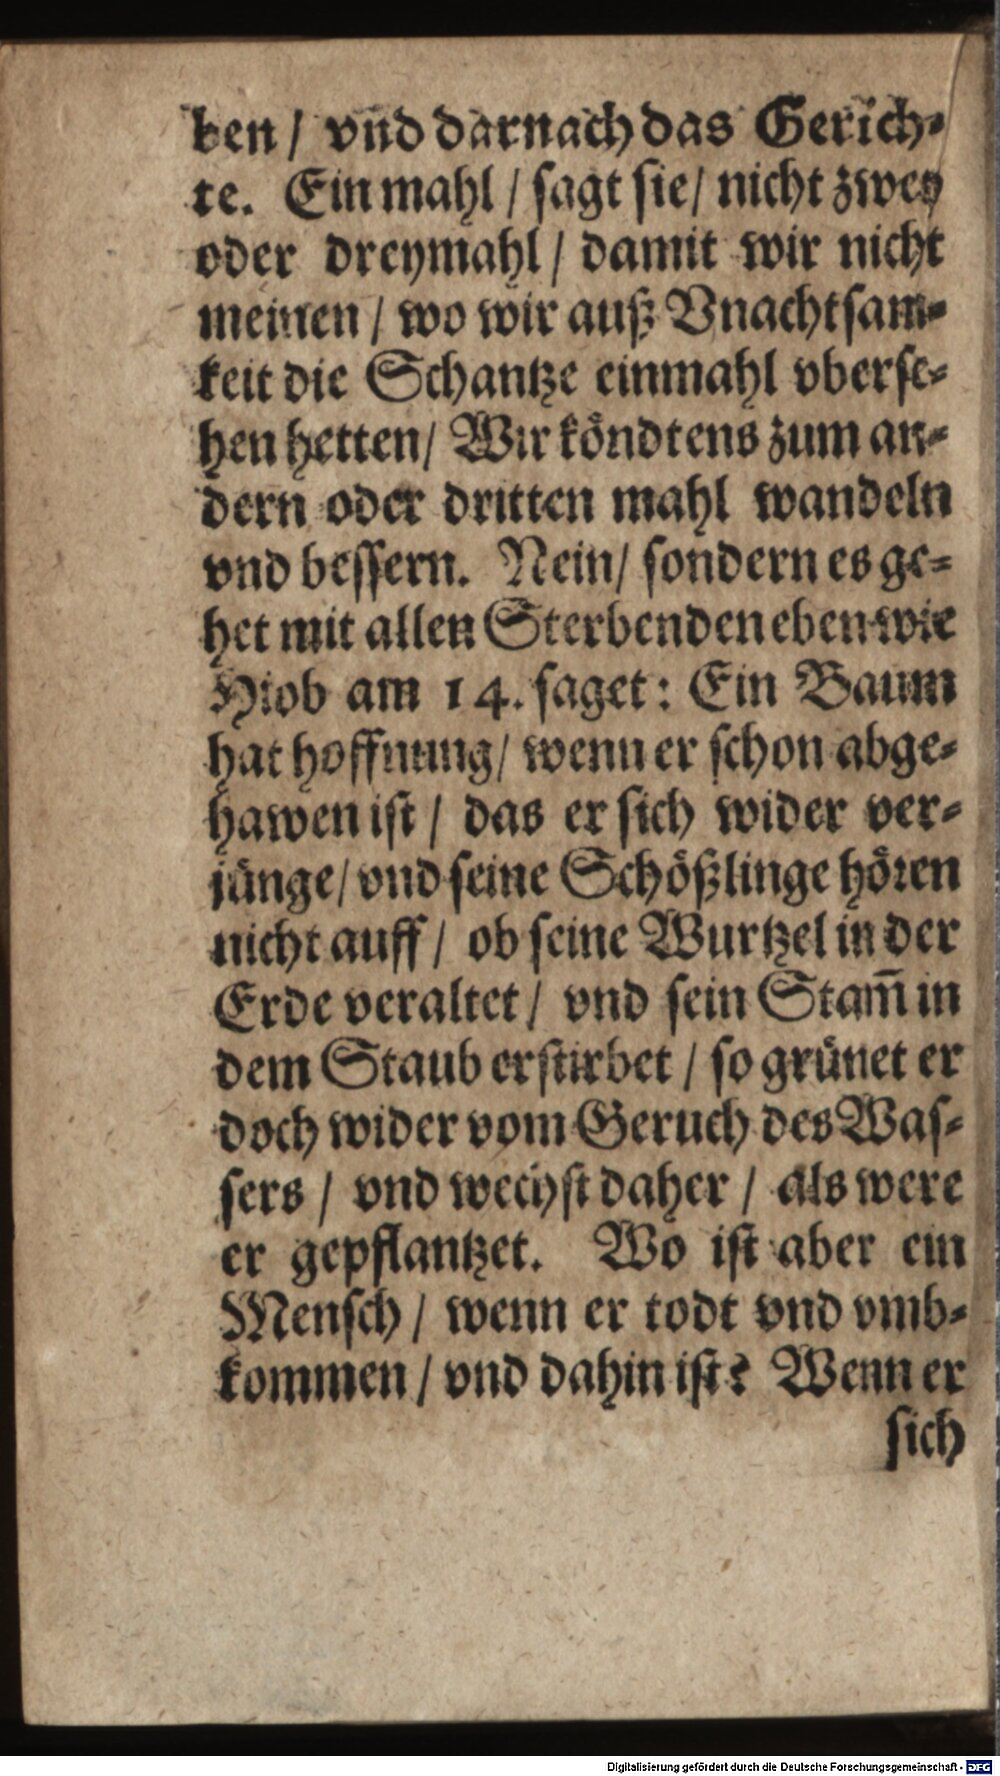 ben / vnd darnach das Gerich-
te. Ein mahl / sagt sie / nicht zwey
oder dreymahl / damit wir nicht
meinen / wo wir auß Vnachtsam-
keit die Schantze einmahl vberse-
hen hetten / Wir köndtens zum an-
dern oder dritten mahl wandeln
vnd bessern. Nein / sondern es ge-
het mit allen Sterbenden eben wie
Hiob am 14. saget: Ein Baum
hat hoffnung / wenn er schon abge-
hawen ist / das er sich wider ver-
jünge / vnd seine Schößlinge hören
nicht auff / ob seine Wurtzel in der
Erde veraltet / vnd sein Stam̃ in
dem Staub erstirbet / so grünet er
doch wider vom Geruch des Was-
sers / vnd wechst daher / als were
er gepflantzet. Wo ist aber ein
Mensch / wenn er todt vnd vmb-
kommen / vnd dahin ist? Wenn er
sich
Digitalisierung gefördert durch die Deutsche Forschungsgemeinschaft - DFG